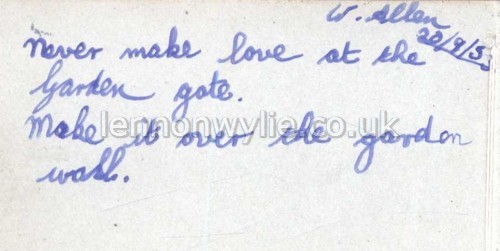 W. Allen
20/9/53
Never make love at the
Garden gate.
Make it over the garden
wall.
lennonwylie.co.uk